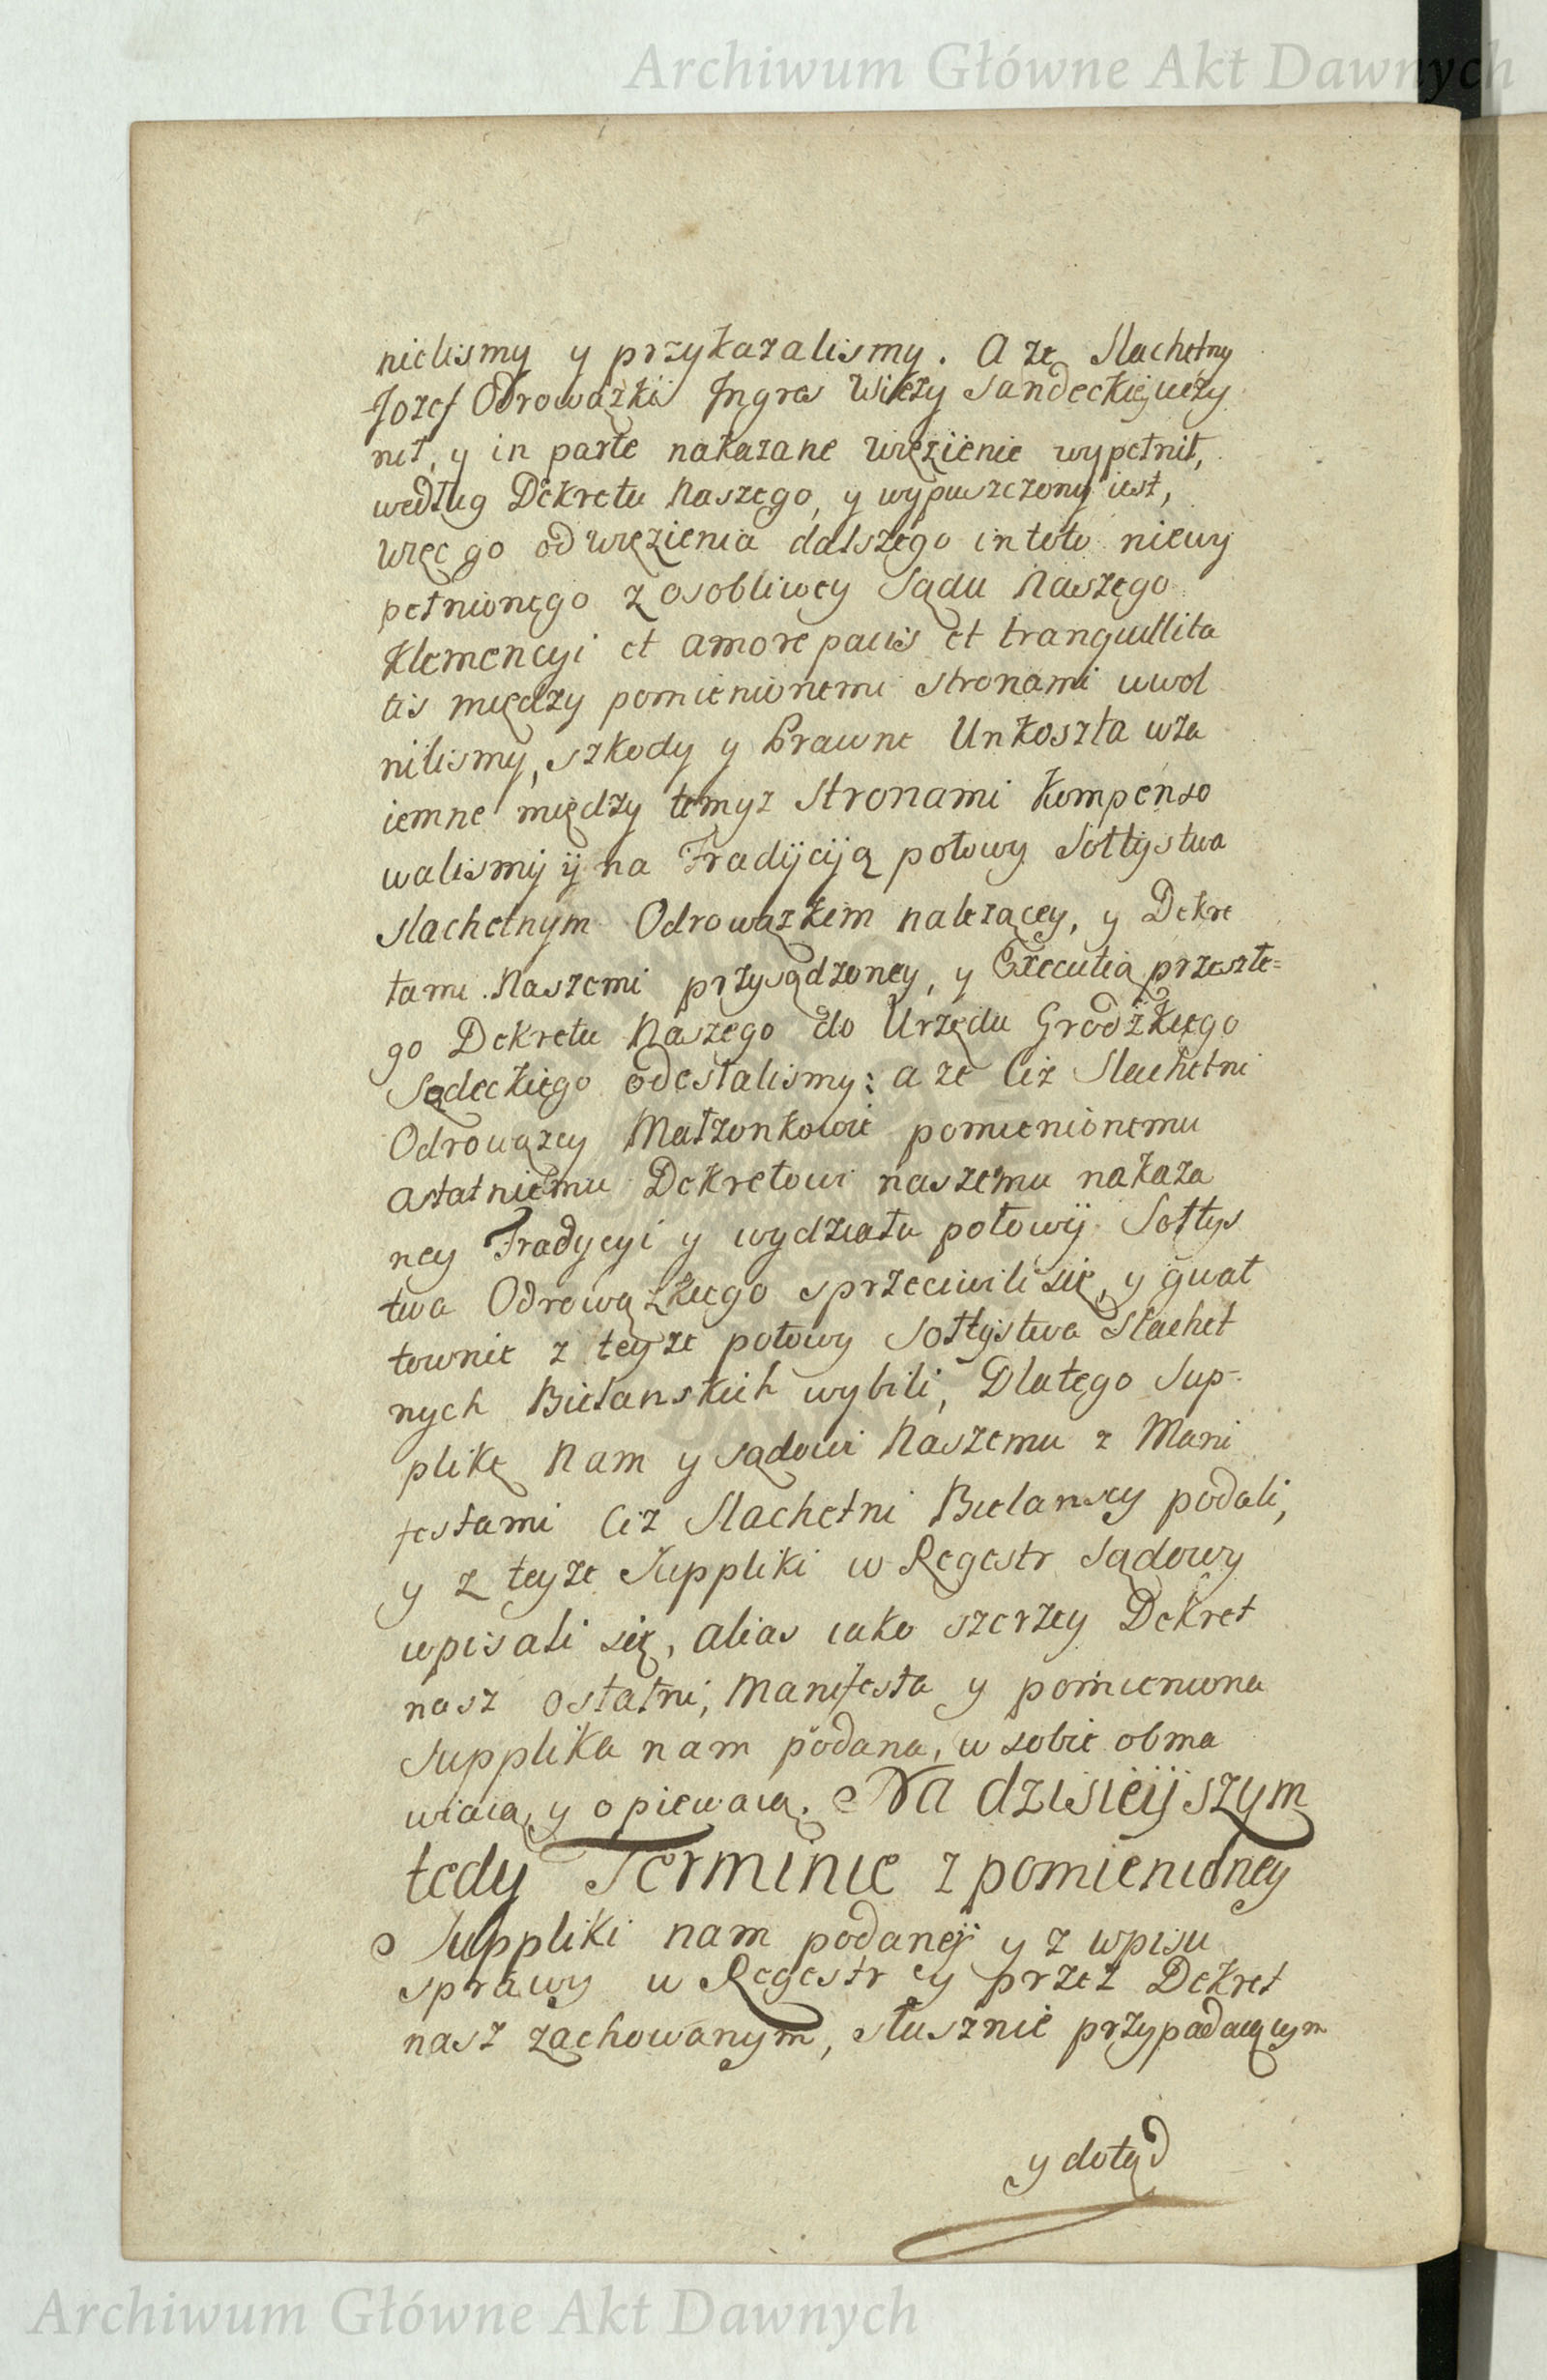 Archiwum Główne Akt Dawnych
nielismy y przykazalismy. A ze Slachetny
Jozef Odrowązki Ingres Wiezy Sandeckiey uczy
nił, y in parte nakazane więzienie wypełnił,
według Dekretu Naszego, y wypuszczony iest,
więc go od więzienia dalszego in toto niewy
pełnionego z osobliwey Sądu Naszego
Klemencyi et amore pacis et tranquillita
tis między pomienionemi stronami uwol
nilismy, szkody y Prawne Unkoszta wza
iemne między temyz Stronami kompenso
walismy ÿ na Tradÿcÿją połowy Sołtystwa
slachetnym Odrowązkem nalezącey, y Dekre
tami Naszemi przysądzoney, y Executią przeszłe=
go Dekretu Naszego do Urzędu Grodzkiego
Sądeckiego odesłalismy: a ze Ciż Slachetni
Odrowązcy Małzonkowie pomienionemu
ostatniemu Dekretowi naszemu nakaza
ney Tradycyi y wydziału połowÿ Sołtys
twa Odrowązkiego sprzeciwili się, y gwał
townie z teyze połowy Sołtystwa Slachet
nych Bielanskich wybili, Dlatego Sup=
plikę Nam y sądowi Naszemu z Mani
festami Ciż Slachetni Bielanscy podali,
y z teyze Suppliki w Regestr Sądowy
wpisali się, alias iako szerzey Dekret
nasz ostatni, Manifesta y pomieniona
Supplika nam podana, w sobie obma
wiaią, y opiewaią. Na dzisieÿszym
tedy Terminie z pomienioney
Suppliki nam podaneÿ y z wpisu
sprawy w Regestr y przez Dekret
nasz zachowanym, słusznie przypadaiącym
y dotąd
Archiwum Główne Akt Dawnych